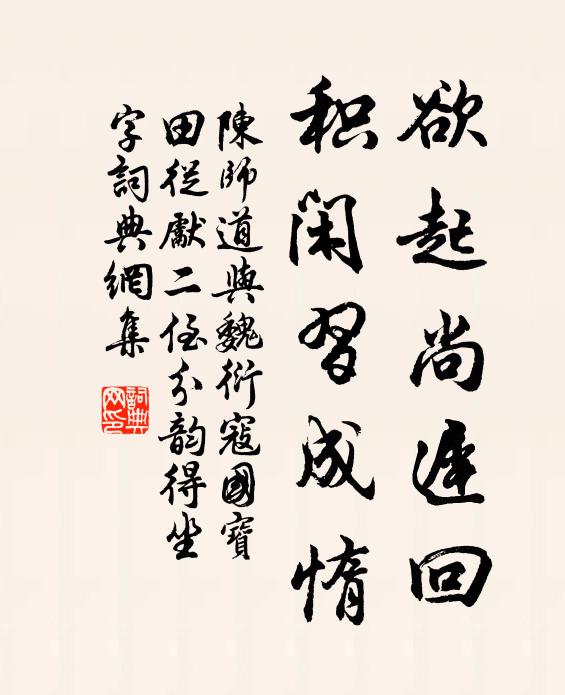 欲起尚遲回
积閑習成惰
陳師道與魏衍寇國寶
田從獻二侄分韵得坐
字詞典網集
詞典
网印